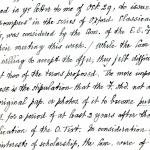 ed in yr letter to me of Oct. 29, to issue
in the series of Oxford Classica
was considered by the Com. of the E.E.T
their meeting this week. While the Com
willing to accept the offer, they felt diffi
two of the terms proposed. The more impo
is the stipulation that the F. shd. not a
original pap. or photos of it to become pub
for a period of at least 2 years after the
lication of the O. Text. In consideration
interests of scholarship, the Com. were of